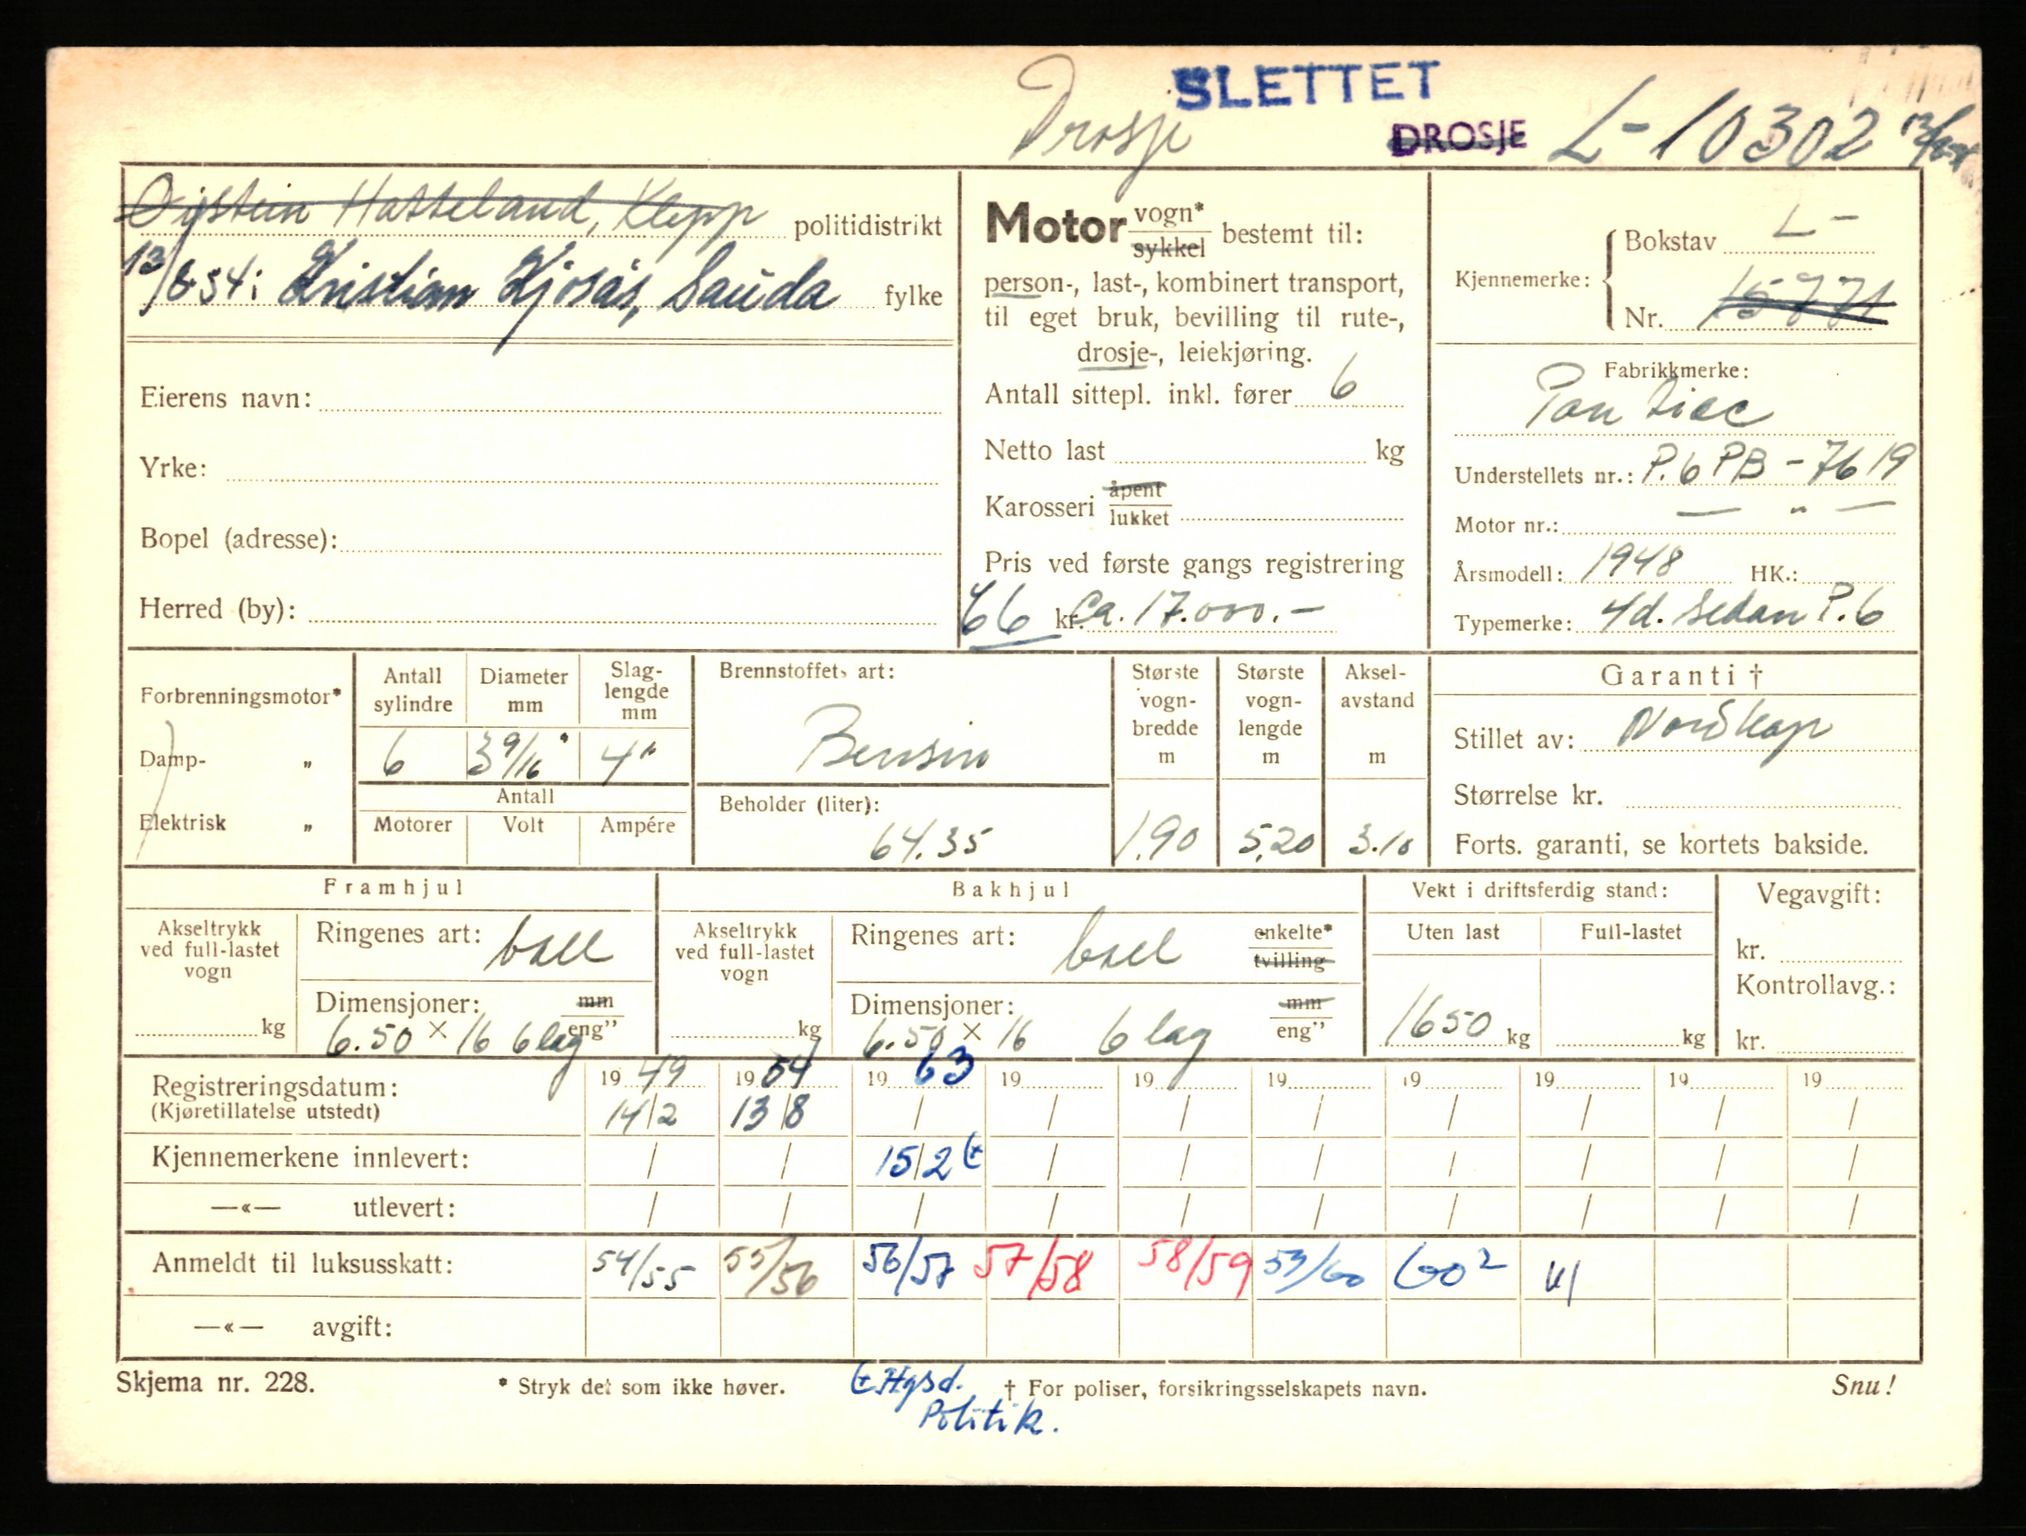 Drosje SLETTET
DROSJE L-10302
Øystein Hatteland, Klepp politidistrikt
13/8 54: Kristian Kjosås, Sauda fylke
Eierens navn:
Yrke:
Bopel (adresse):
Herred (by):
Motor vogn* sykkel bestemt til:
person-, last-, kombinert transport,
til eget bruk, bevilling til rute-,
drosje-, leiekjøring.
Antall sittepl. inkl. fører 6
Netto last kg
Karosseri åpent lukket
Pris ved første gangs registrering
66 kr. Ca. 17.000.-
Kjennemerke: Bokstav L-
Nr. 15771
Fabrikkmerke:
Pontiac
Understellets nr.: P.6 PB-7619
Motor nr.: — " —
Årsmodell: 1948 HK.:
Typemerke: 4d. Sedan P.6
Forbrenningsmotor*
Damp- "
Elektrisk "
Antall sylindre 6
Diameter mm 3 9/16"
Slaglengde mm 4"
Antall
Motorer Volt Ampére
Brennstoffets art:
Bensin
Beholder (liter):
64.35
Største vognbredde m 1.90
Største vognlengde m 5.20
Akselavstand m 3.10
Garanti †
Stillet av: Nordkap
Størrelse kr.
Forts. garanti, se kortets bakside.
Framhjul
Akseltrykk ved full-lastet vogn kg
Ringenes art: ball
Dimensjoner: mm eng"
6.50 × 16 6 lag
Bakhjul
Akseltrykk ved full-lastet vogn kg
Ringenes art: ball enkelte* tvilling
Dimensjoner: mm eng"
6.50 × 16 6 lag
Vekt i driftsferdig stand:
Uten last Full-lastet
1650 kg kg
Vegavgift:
kr.
Kontrollavg.:
kr.
Registreringsdatum: 19 49 19 54 19 63 19 19 19 19 19 19 19
(Kjøretillatelse utstedt) 14/2 13/8 / / / / / / / /
Kjennemerkene innlevert: / / 15/2 / / / / / / /
—«— utlevert: / / / / / / / / / /
Anmeldt til luksusskatt: 54/55 55/56 56/57 57/58 58/59 59/60 60²
—«— avgift:
Skjema nr. 228. * Stryk det som ikke høver. Hgsd. † For poliser, forsikringsselskapets navn. Snu!
Politik.